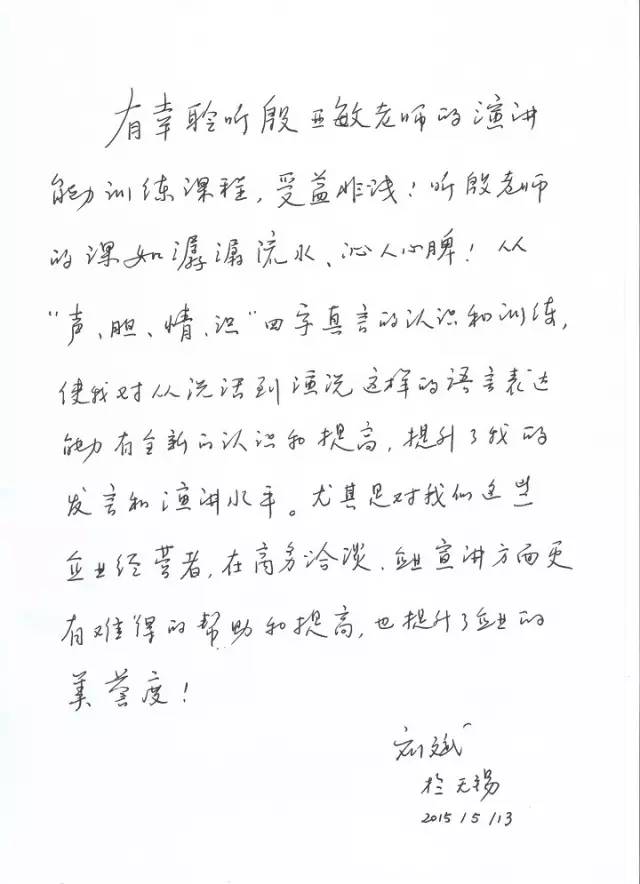 有幸聆听殷亚敏老师的演讲
能力训练课程，受益非浅！听殷老师
的课如潺潺流水、沁人心脾！从
“声、胆、情、识”四字真言的认识和训练，
使我对从说话到演说这样的语言表达
能力有全新的认识和提高，提升了我的
发言和演讲水平。尤其是对我们这些
企业经营者，在商务洽谈、企业宣讲方面更
有难得的帮助和提高，也提升了企业的
美誉度！
刘斌
於无锡
2015/5/13